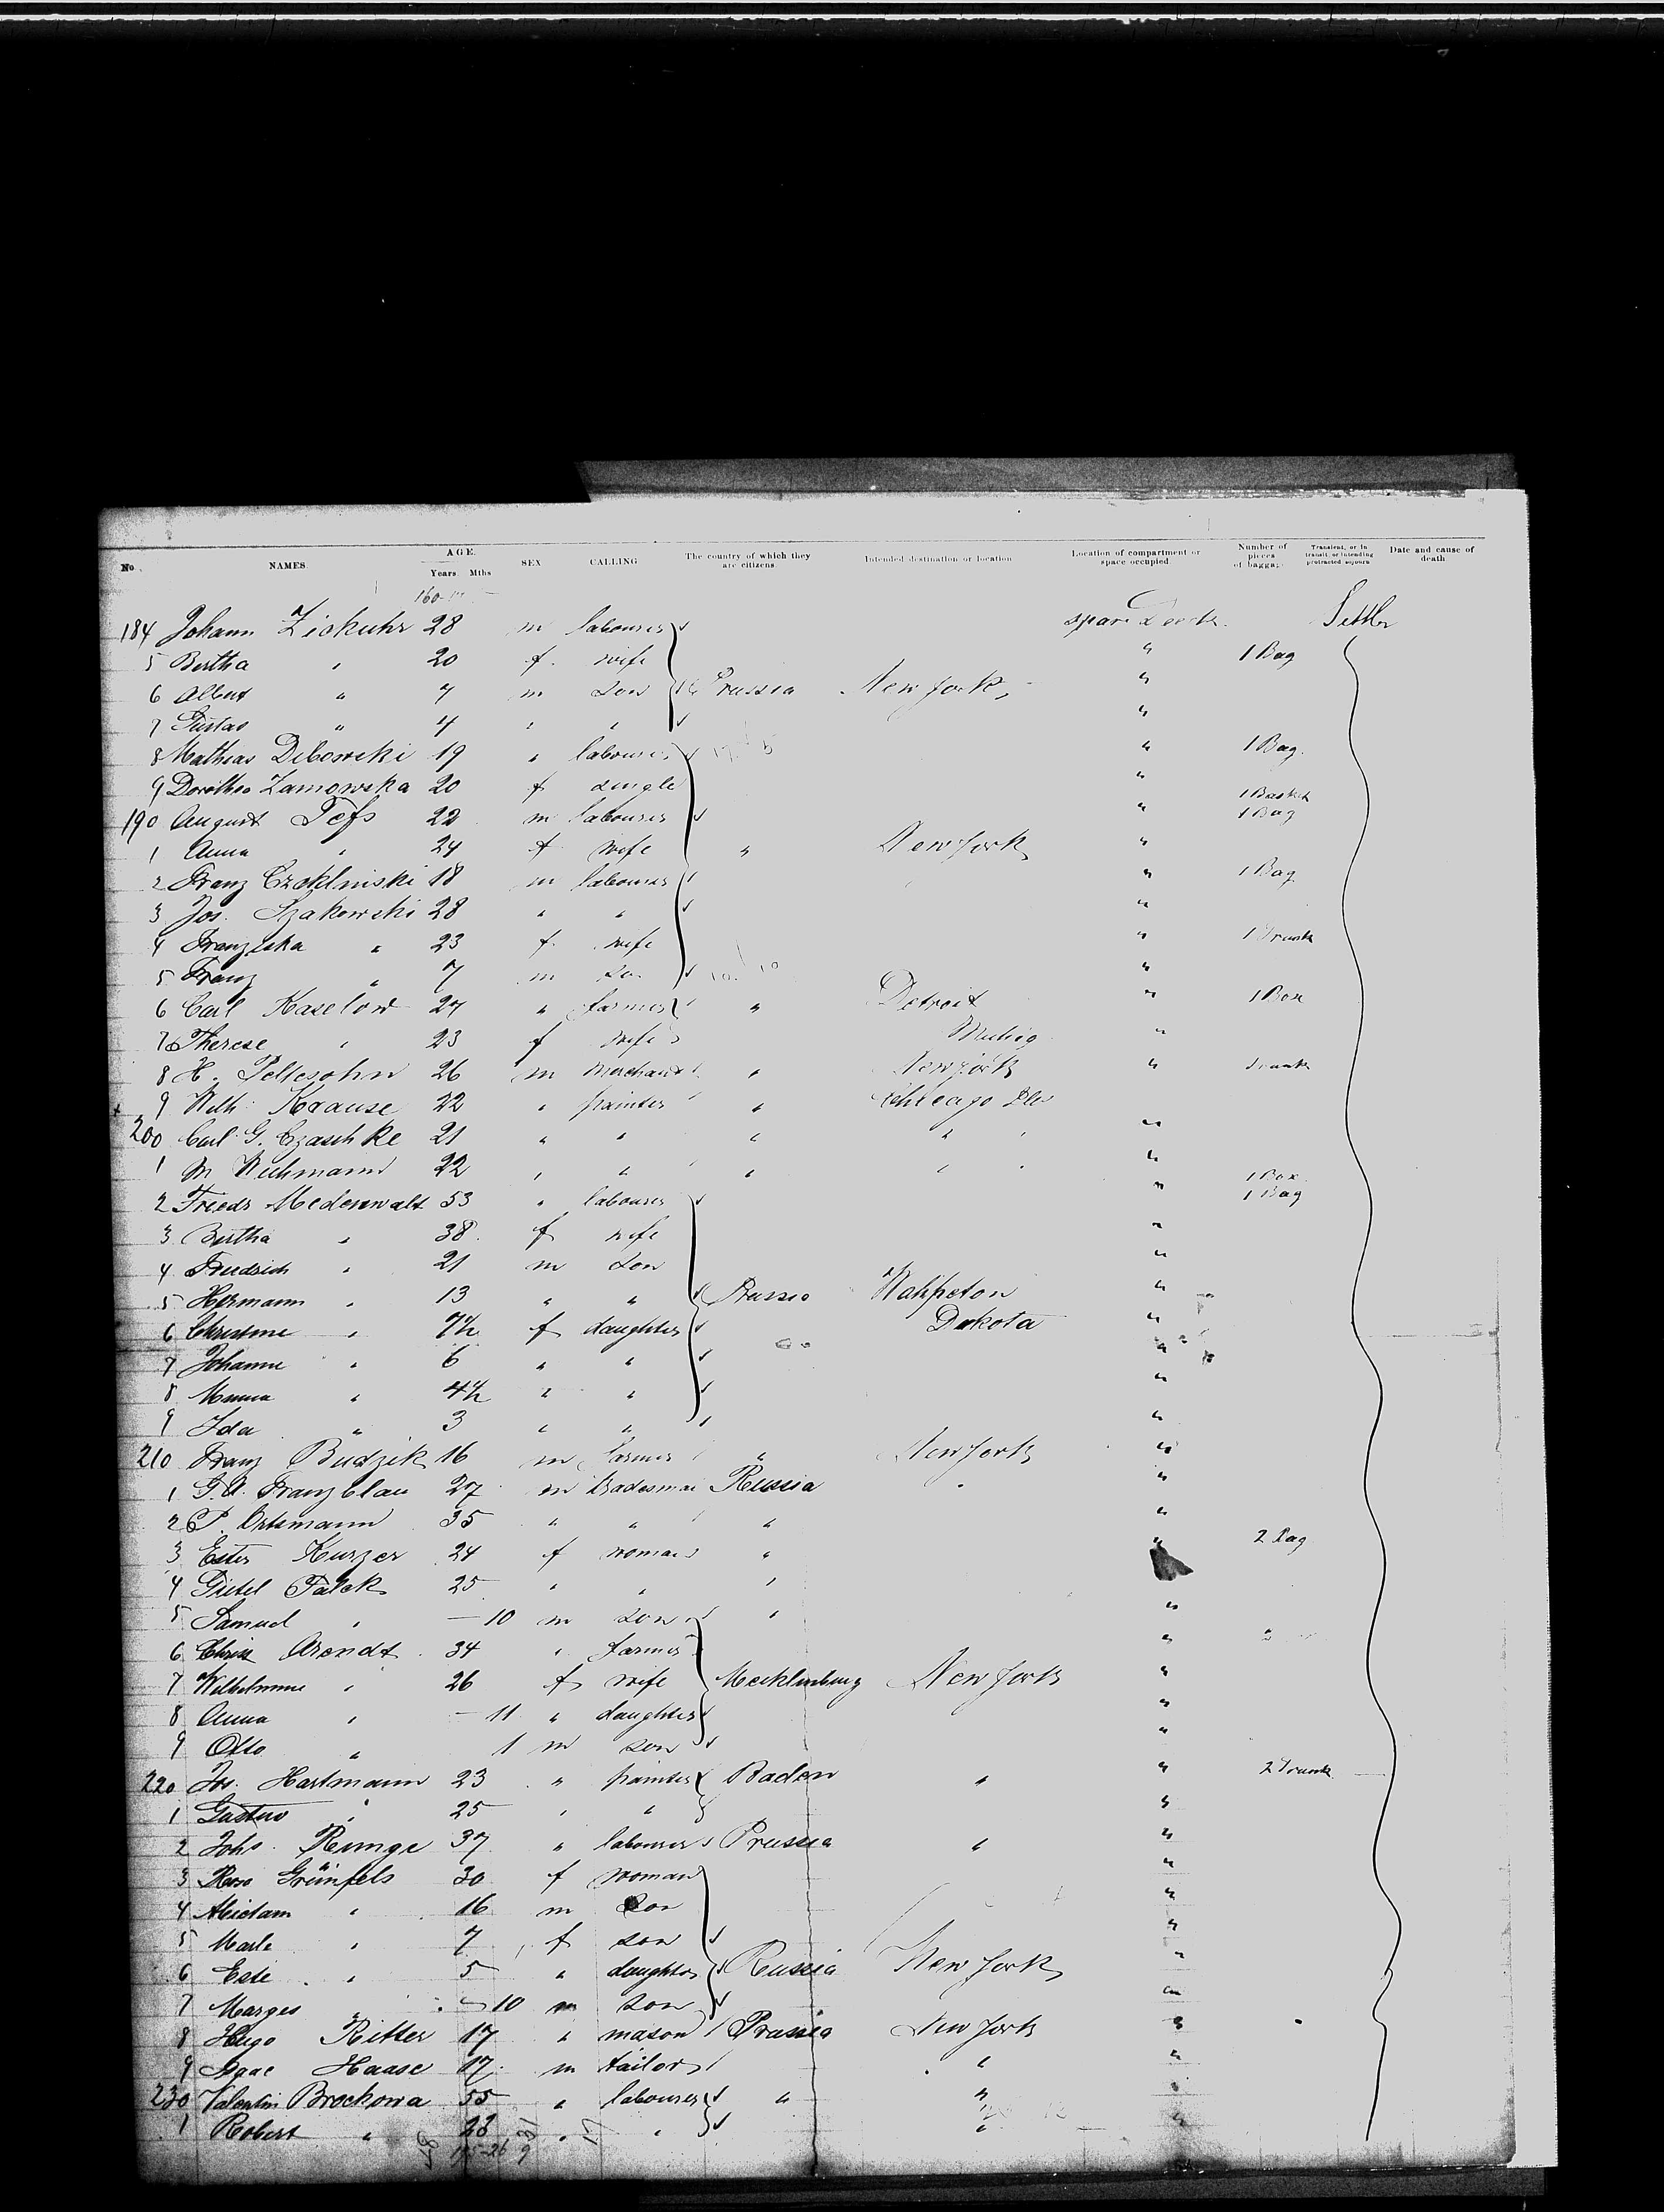 No. NAMES. AGE. Years. Mths SEX CALLING The country of which they are citizens. Intended destination or location Location of compartment or space occupied. Number of pieces of baggage Transient, or in transit, or intending protracted sojourn Date and cause of death
160
184 Johann Zickuhr 28 m labourer Settler
5 Bertha " 20 f. wife " 1 Bag
6 Albert " 7 m son Prussia New York "
7 Gustav " 4 " " "
8 Mathias Dibowski 19 " labourer " 1 Bag.
9 Dorothea Zamowska 20 f single " 1 Basket
190 August Tefs 22 m labourer " 1 Bag
1 Anna " 24 f. wife " New York "
2 Franz 18 m labourer " 1 Bag
3 Jos. Szakowski 28 " " "
4 Franziska " 23 f. wife " 1 Trunk
5 Franz " 7 m son "
6 Carl Kaselow 27 " farmer " Detroit " 1 Box
7 Therese " 23 f wife "
8 H. Peltesohn 26 m merchant " New York " Trunk
9 Wilh. Krause 22 " painter " Chicago Ills
200 Carl G. Czaschke 21 " " " " "
1 M Wichmann 22 " " " " " 1 Box
2 Friedr Medenwalt 53 " labourer " 1 Bag
3 Bertha " 38 f wife "
4 Friedrich " 21 m son "
5 Hermann " 13 " " Prussia Wahpeton "
6 Christine " 7½ f daughter Dakota "
7 Johanne " 6 " " "
8 " 4½ " " "
9 Ida " 3 " " "
210 Franz Budzik 16 m farmer " New York "
1 Franzblau 27 m tradesman Russia " "
2 Ortsmann 35 " " " "
3 Ester Kurzer 24 f woman " " 2 Bag
4 Gittel Falek 25 " " "
5 Samuel " — 10 m son " "
6 Christ Arendt 34 " farmer "
7 Wilhelmine " 26 f wife Mecklenburg New York "
8 Anna " — 11 " daughter "
9 Otto " 1 m son "
220 Jos. Hartmann 23 " painter Baden " " 2 Trunk
1 Gustav " 25 " " "
2 Johs. Runge 37 " labourer Prussia " "
3 Rosa Grünfels 30 f woman "
4 " 16 m son "
5 " 7 f son "
6 Este " 5 " daughter Russia New York "
7 Marges " 10 m son "
8 Hugo Ritter 17 " mason Prussia New York "
9 Isaac Haase 17 m tailor " "
230 Valentin Brockowa 55 " labourer " " "
1 Robert " 23 " " " "